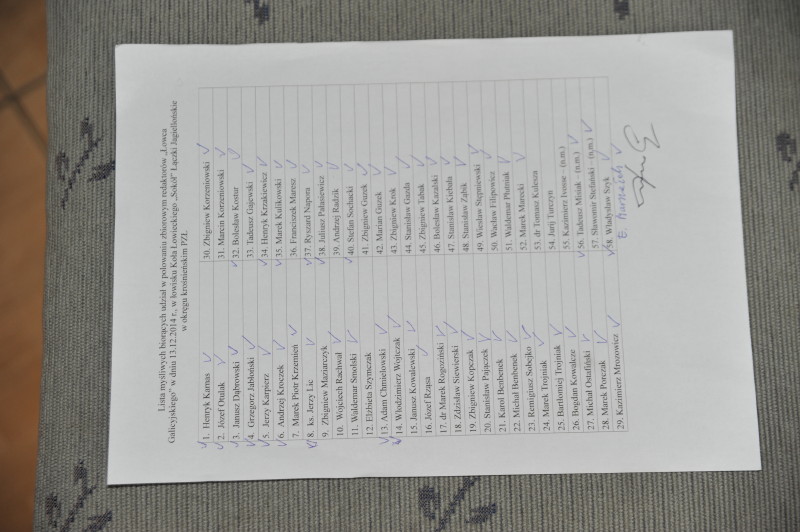 Lista myśliwych biorących udział w polowaniu zbiorowym redaktorów „Łowca
Galicyjskiego" w dniu 13.12.2014 r., w łowisku Koła Łowieckiego „Sokół" Łączki Jagiellońskie
w okręgu krośnieńskim PZŁ
1. Henryk Karnas
2. Józef Otulak
3. Janusz Dąbrowski
4. Grzegorz Jabłoński
5. Jerzy Karpierz
6. Andrzej Kroczek
7. Marek Piotr Krzemień
8. ks. Jerzy Lic
9. Zbigniew Maziarczyk
10. Wojciech Rachwał
11. Waldemar Smolski
12. Elżbieta Szymczak
13. Adam Chmielowski
14. Włodzimierz Wojtczak
15. Janusz Kowalewski
16. Józef Rząsa
17. dr Marek Rogoziński
18. Zdzisław Siewierski
19. Zbigniew Kopczak
20. Stanisław Pajączek
21. Karol Benbenek
22. Michał Benbenek
23. Remigiusz Sobejko
24. Marek Trojniak
25. Bartłomiej Trojniak
26. Bogdan Kowalcze
27. Michał Ostafiński
28. Marek Porczak
29. Kazimierz Mrozowicz
30. Zbigniew Korzeniowski
31. Marcin Korzeniowski
32. Bolesław Kostur
33. Tadeusz Gajewski
34. Henryk Krzakiewicz
35. Marek Kulikowski
36. Franciszek Marosz
37. Ryszard Napora
38. Juliusz Pałasiewicz
39. Andrzej Radzik
40. Stefan Sosnacki
41. Zbigniew Guzek
42. Marian Guzek
43. Zbigniew Krok
44. Stanisław Gazda
45. Zbigniew Tabak
46. Bolesław Karalski
47. Stanisław Kichula
48. Stanisław Ząbik
49. Wiesław Stępniowski
50. Wacław Filipowicz
51. Waldemar Płatniak
52. Marek Matecki
53. dr Tomasz Kulesza
54. Jurij Turczyn
55. Kazimierz Iwosse – (n.m.)
56. Tadeusz Misiak – (n.m.)
57. Sławomir Stefański – (n.m.)
58. Władysław Stryk